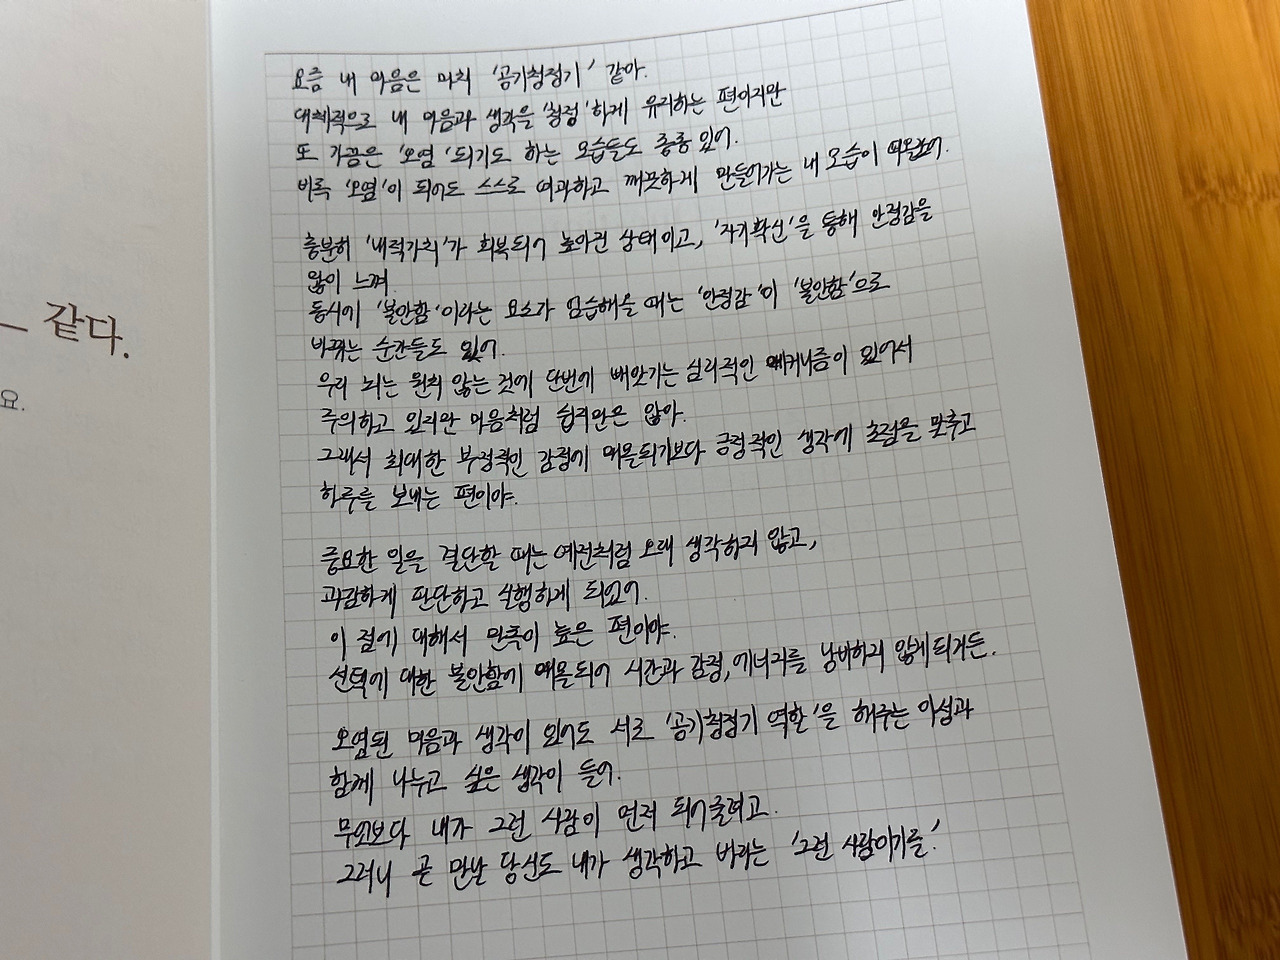 같다.
요.
요즘 내 마음은 마치 '공기청정기' 같아.
대체적으로 내 마음과 생각을 '청정'하게 유지하는 편이지만
또 가끔은 '오염'되기도 하는 모습들도 종종 있어.
비록 '오염'이 되어도 스스로 여과하고 깨끗하게 만들어가는 내 모습이 떠올랐어.
충분히 '내적가치'가 회복되어 높아진 상태이고, '자기확신'을 통해 안정감을
많이 느껴.
동시에 '불안함'이라는 요소가 엄습해올 때는 '안정감'이 '불안함'으로
바뀌는 순간들도 있어.
우리 뇌는 원치 않는 것에 단번에 빼앗기는 심리적인 메커니즘이 있어서
주의하고 있지만 마음처럼 쉽지만은 않아.
그래서 최대한 부정적인 감정에 매몰되기보다 긍정적인 생각에 초점을 맞추고
하루를 보내는 편이야.
중요한 일을 결단할 때는 예전처럼 오래 생각하지 않고,
과감하게 판단하고 실행하게 되었어.
이 점에 대해서 만족이 높은 편이야.
선택에 대한 불안함에 매몰되어 시간과 감정, 에너지를 낭비하지 않게되거든.
오염된 마음과 생각이 있어도 서로 '공기청정기 역할'을 해주는 이성과
함께 나누고 싶은 생각이 들어.
무엇보다 내가 그런 사람이 먼저 되어주려고.
그러니 곧 만날 당신도 내가 생각하고 바라는 '그런 사람이기를.'